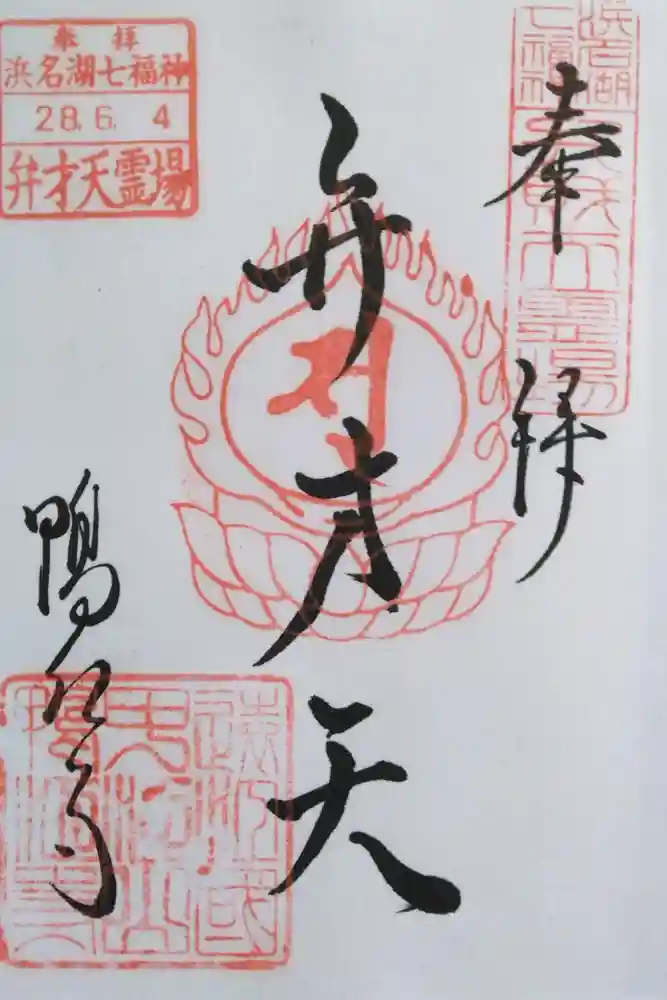 奉拝
浜名湖
七福神
弁才天
鴨江寺
奉拝
浜名湖七福神
28.6.4
弁才天霊場